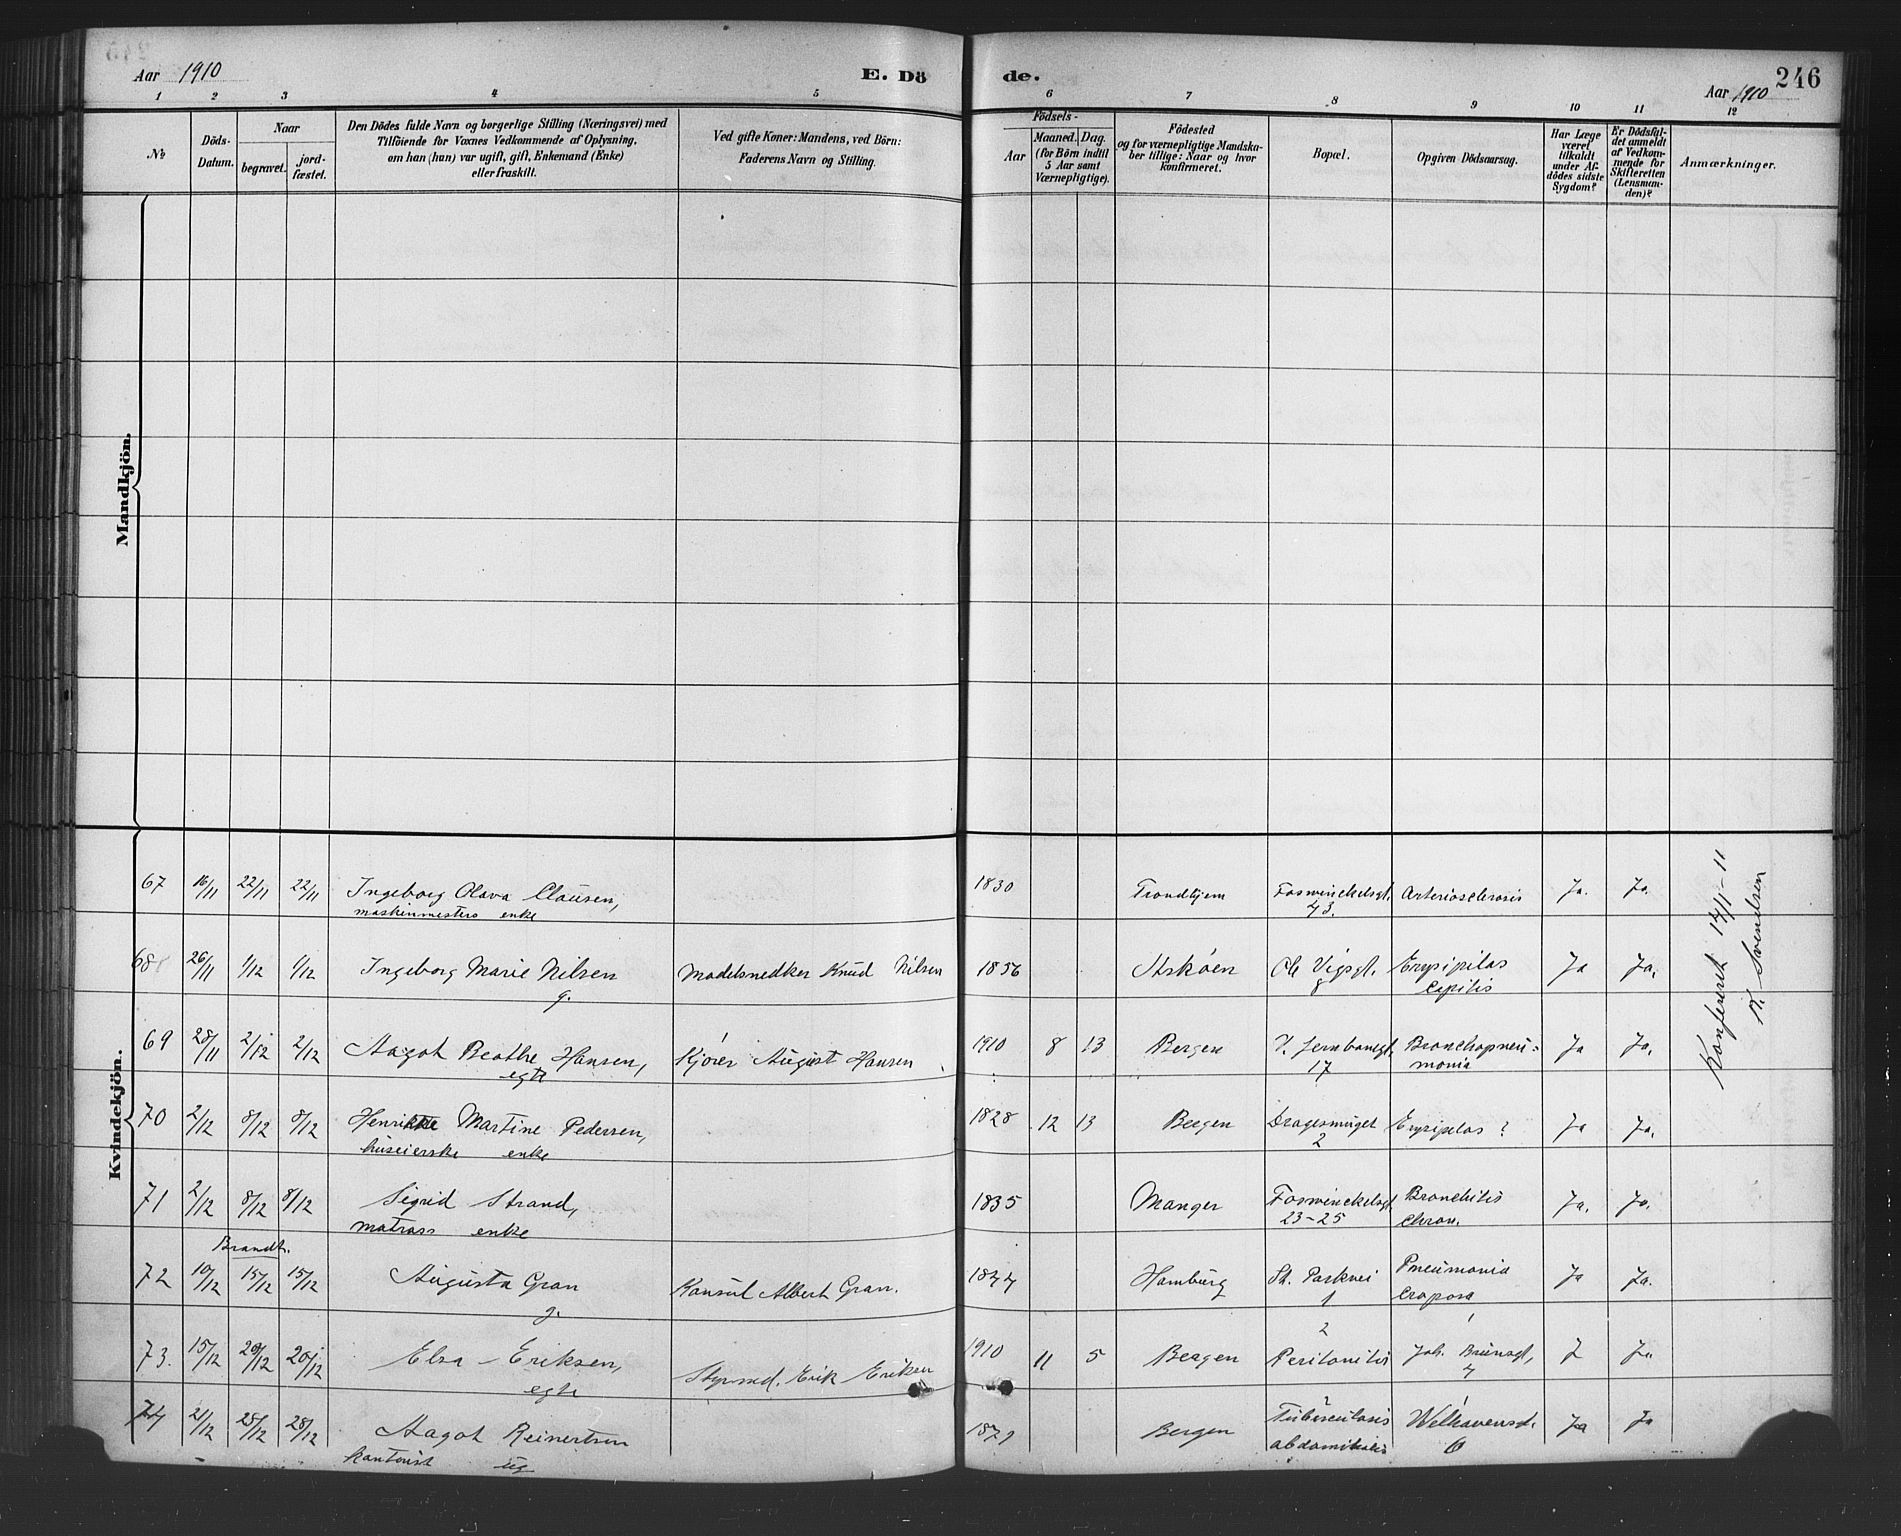 Aar 1910
E. Dö
de.
Aar 1910
246
1 2 3 4 5 6 7 8 9 10 11 12
No
Döds-
Datum.
Naar
begravet.
jord-
fæstet.
Den Dödes fulde Navn og borgerlige Stilling (Næringsvei) med
Tilföiende for Voxnes Vedkommende af Oplysning,
om han (hun) var ugift, gift, Enkemand (Enke)
eller fraskilt.
Ved gifte Koner: Mandens, ved Börn:
Faderens Navn og Stilling.
Födsels-
Aar
Maaned.
Dag.
(for Börn indtil
5 Aar samt
Værnepligtige).
Födested
og for værnepligtige Mandska-
ber tillige: Naar og hvor
konfirmeret.
Bopæl.
Opgiven Dödsaarsag.
Har Læge
været
tilkaldt
under Af-
dödes sidste
Sygdom?
Er Dödsfal-
det anmeldt
af Vedkom-
mende for
Skifteretten
(Lensman-
den)?
Anmærkninger.
Mandkjön.
Kvindekjön.
67 16/11 22/11 22/11 Ingeborg Olava Clausen, 1830 Trondhjem Foswinckelsgt. Arteriosclerosis Ja. Ja.
maskinmesters enke 43.
68 26/11 1/12 1/12 Ingeborg Marie Nilsen Modelsnedker Knud Nilsen 1856 Askøen Ole Vigsgt. Erysipelas Ja Ja.
g. 8 capitis
69 28/11 2/12 2/12 Aagot Beathe Hansen, Kjører August Hansen 1910 8 13 Bergen V. Jernbanegt. Bronchopneu-
egte 17 monia Ja Ja.
70 2/12 8/12 8/12 Henrikke Martine Pedersen, 1828 12 13 Bergen Dragesmuget Erysipelas? Ja Ja.
huseierske enke 2
71 2/12 8/12 8/12 Sigrid Strand, 1835 Manger Foswinckelsgt. Bronchitis Ja. Ja.
matross enke 23-25 chron.
Brandt.
72 10/12 15/12 15/12 Augusta Gran Konsul Albert Gran. 1844 Hamburg St. Parkvei Pneumonia Ja Ja.
g. 1 croposa
2 1
73. 15/12 20/12 20/12 Elsa Eriksen, Styrmd. Erik Eriksen 1910 11 5 Bergen Peritonitis Joh. Brunsgt, J Ja
egte 7
2 1
74 21/12 28/12 28/12 Aagot Reinertsen 1879 Bergen Tuberculosis Welhavensgt. Ja Ja
kontorist ug abdominalis 6
Konfereret 14/1-11
K. Svendsen